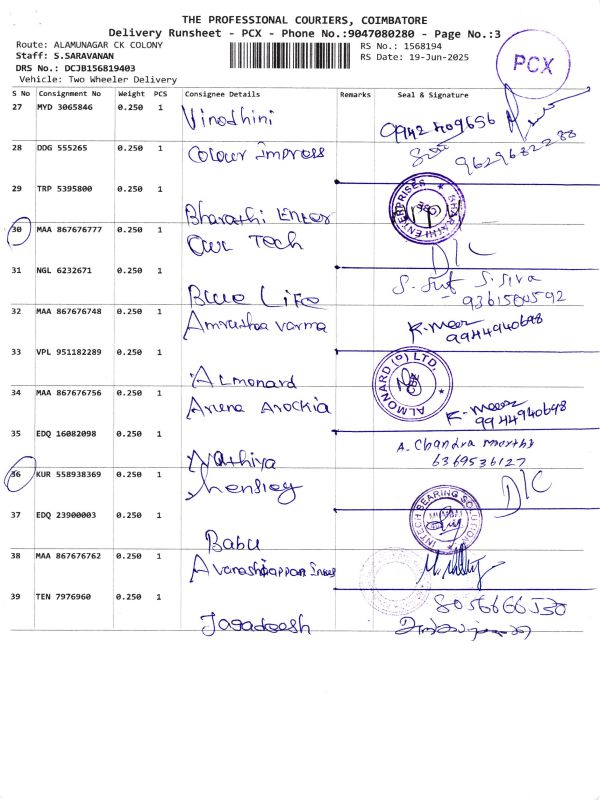 THE PROFESSIONAL COURIERS, COIMBATORE
Delivery Runsheet - PCX - Phone No.:9047080280 - Page No.:3
Route: ALAMUNAGAR CK COLONY
RS No.: 1568194
Staff: S.SARAVANAN
RS Date: 19-Jun-2025
DRS No.: DCJB156819403
Vehicle: Two Wheeler Delivery
PCX
S No Consignment No Weight PCS Consignee Details Remarks Seal & Signature
27 MYD 3065846 0.250 1 Vinodhini 9942409656
28 DDG 555265 0.250 1 Colour Impress 9629682288
29 TRP 5395800 0.250 1 Bharathi Enter
BHARATHI ENTERPRISES CBE
30 MAA 867676777 0.250 1 Our Tech D/C
31 NGL 6232671 0.250 1 Blue Life S. S. Siva
9361500592
32 MAA 867676748 0.250 1 Amrutha varma K-meer
9944940698
33 VPL 951182289 0.250 1 Almonard
ALMONARD (P) LTD. CBE
34 MAA 867676756 0.250 1 Arena Arockia K-meer
9944940698
35 EDQ 16082098 0.250 1 Nathiya A. Chandra moorthy
6369536127
36 KUR 558938369 0.250 1 Shensley D/C
37 EDQ 23900003 0.250 1 Babu
INTECH BEARING SOLUTION
38 MAA 867676762 0.250 1 Avanashiappan
39 TEN 7976960 0.250 1 Jagadeesh 8056666530